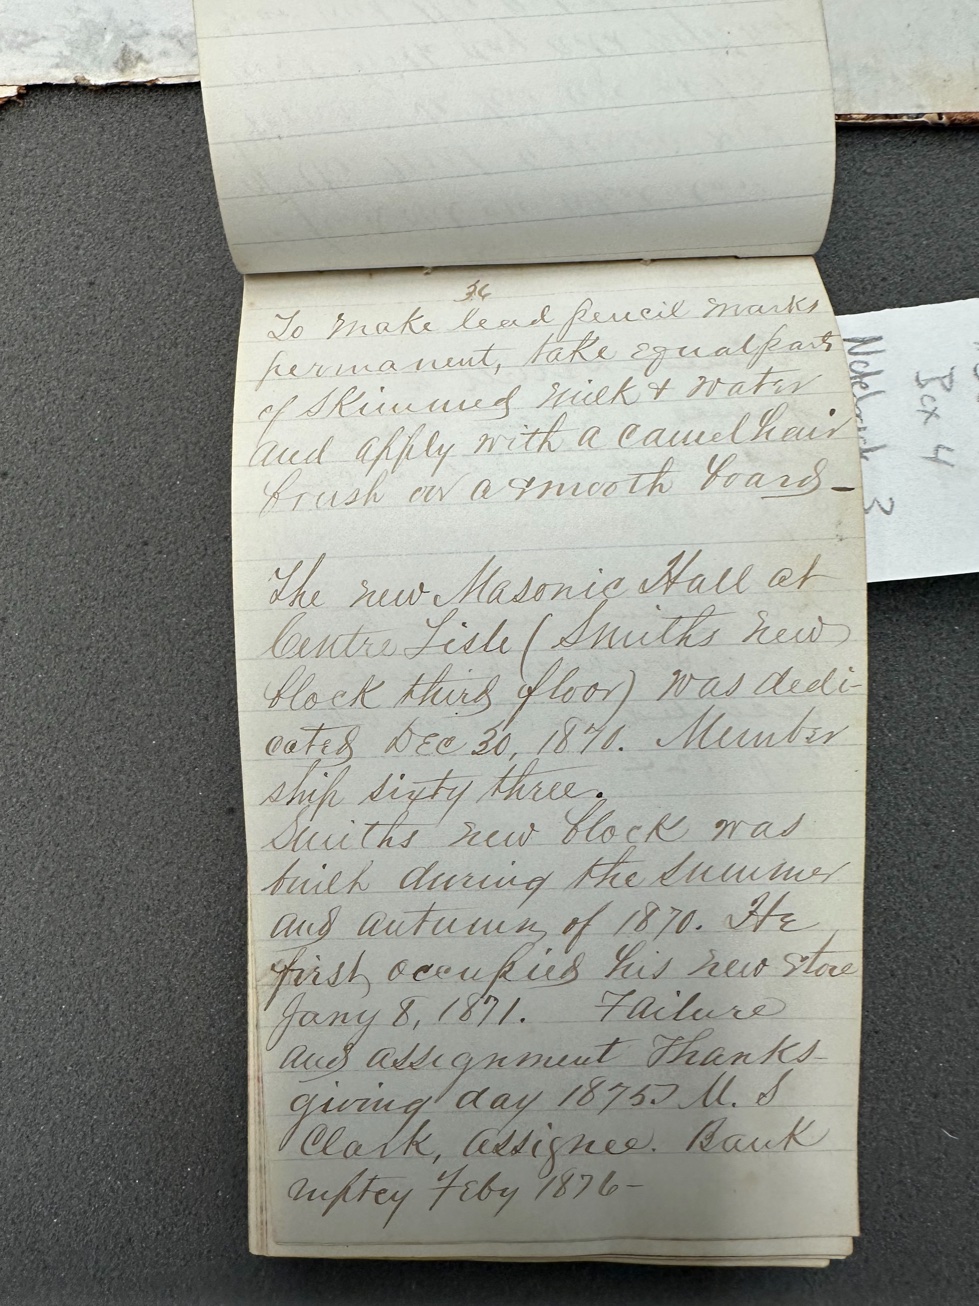 36
To make lead pencil marks
permanent, take equal parts
of skimmed milk & water
and apply with a camel hair
brush on a smooth board_
The new Masonic Hall at
Centre Lisle (Smiths new
block third floor) was dedi-
cated Dec 30, 1870. Member
ship sixty three.
Smiths new block was
built during the summer
and autumn of 1870. He
first occupied his new store
Jany 8, 1871. Failure
and assignment Thanks-
giving day 1875 M. S
Clark, assignee. Bank
ruptcy Feby 1876-
Box 4
Notebook 3